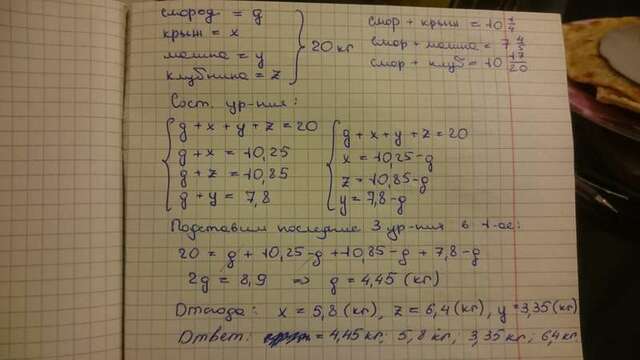 смород = g
крыж = x
малина = y
клубника = z
20 кг
смор + крыж = 10 1/4
смор + малина = 7 4/5
смор + клуб = 10 17/20
Сост. ур-ния:
g + x + y + z = 20
g + x = 10,25
g + z = 10,85
g + y = 7,8
g + x + y + z = 20
x = 10,25 - g
z = 10,85 - g
y = 7,8 - g
Подставим последние 3 ур-ния в 1-ое:
20 = g + 10,25 - g + 10,85 - g + 7,8 - g
2g = 8,9 ⇒ g = 4,45 (кг)
Отсюда: x = 5,8 (кг), z = 6,4 (кг), y = 3,35 (кг)
Ответ: = 4,45 кг; 5,8 кг; 3,35 кг; 6,4 кг.